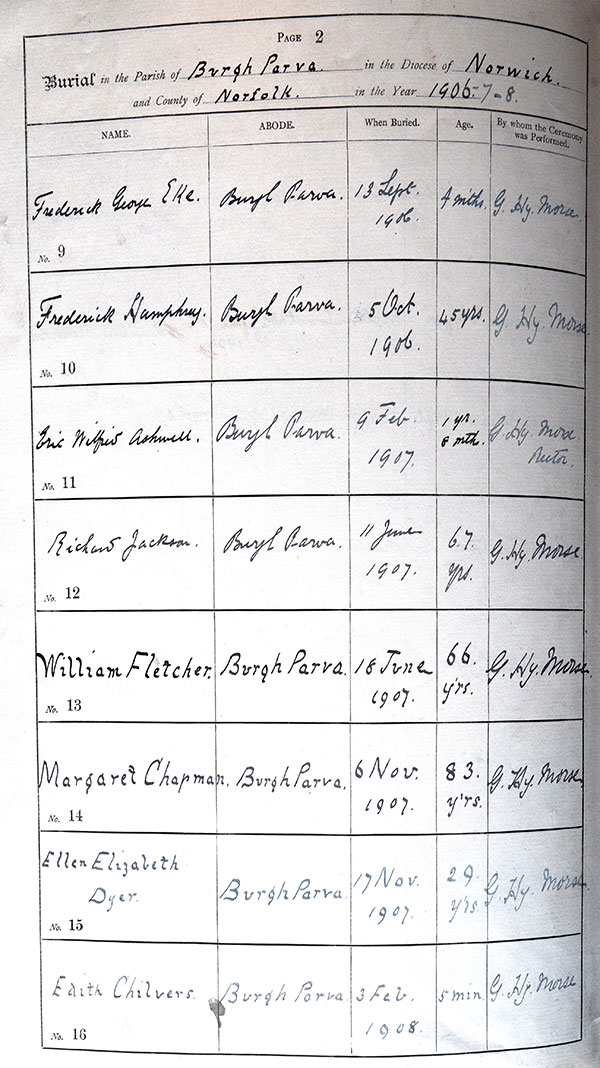 PAGE 2
Burial in the Parish of Burgh Parva in the Diocese of Norwich.
and County of Norfolk. in the Year 1906-7-8.
NAME. ABODE. When Buried. Age. By whom the Ceremony was Performed.
Frederick George Eke. Burgh Parva. 13 Sept. 1906. 4 mths. G. Hy. Morse.
No. 9
Frederick Humphrey. Burgh Parva. 5 Oct. 1906. 45 yrs. G. Hy. Morse.
No. 10
Eric Wilfrid Ashwell. Burgh Parva. 9 Feb. 1907. 1 yr. 8 mths. G. Hy. Morse Rector.
No. 11
Richard Jackson. Burgh Parva. 11 June 1907. 67 yrs. G. Hy. Morse
No. 12
William Fletcher. Burgh Parva. 18 June 1907. 66. y'rs. G. Hy. Morse.
No. 13
Margaret Chapman. Burgh Parva. 6 Nov. 1907. 83. y'rs. G. Hy. Morse.
No. 14
Ellen Elizabeth
Dyer. Burgh Parva. 17 Nov. 1907. 29. yrs. G. Hy. Morse
No. 15
Edith Chilvers. Burgh Parva. 3 Feb. 1908. 5 min. G. Hy. Morse
No. 16